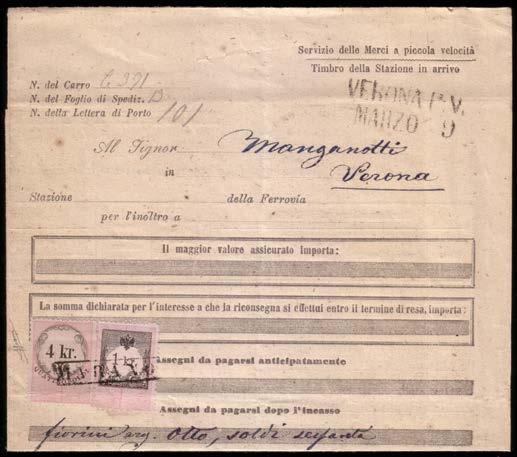 Servizio delle Merci a piccola velocità
Timbro della Stazione in arrivo
VERONA P. V.
MARZO 9
N. del Carro C. 391
N. del Foglio di Spediz.
N. della Lettera di Porto 101
Al Signor Manganotti
in Verona
Stazione della Ferrovia
per l'inoltro a
Il maggior valore assicurato importa:
La somma dichiarata per l'interesse a che la riconsegna si effettui entro il termine di resa, importa:
4 kr. 1 kr.
Assegni da pagarsi anticipatamente
Assegni da pagarsi dopo l'incasso
fiorini arg. Otto, soldi sessanta